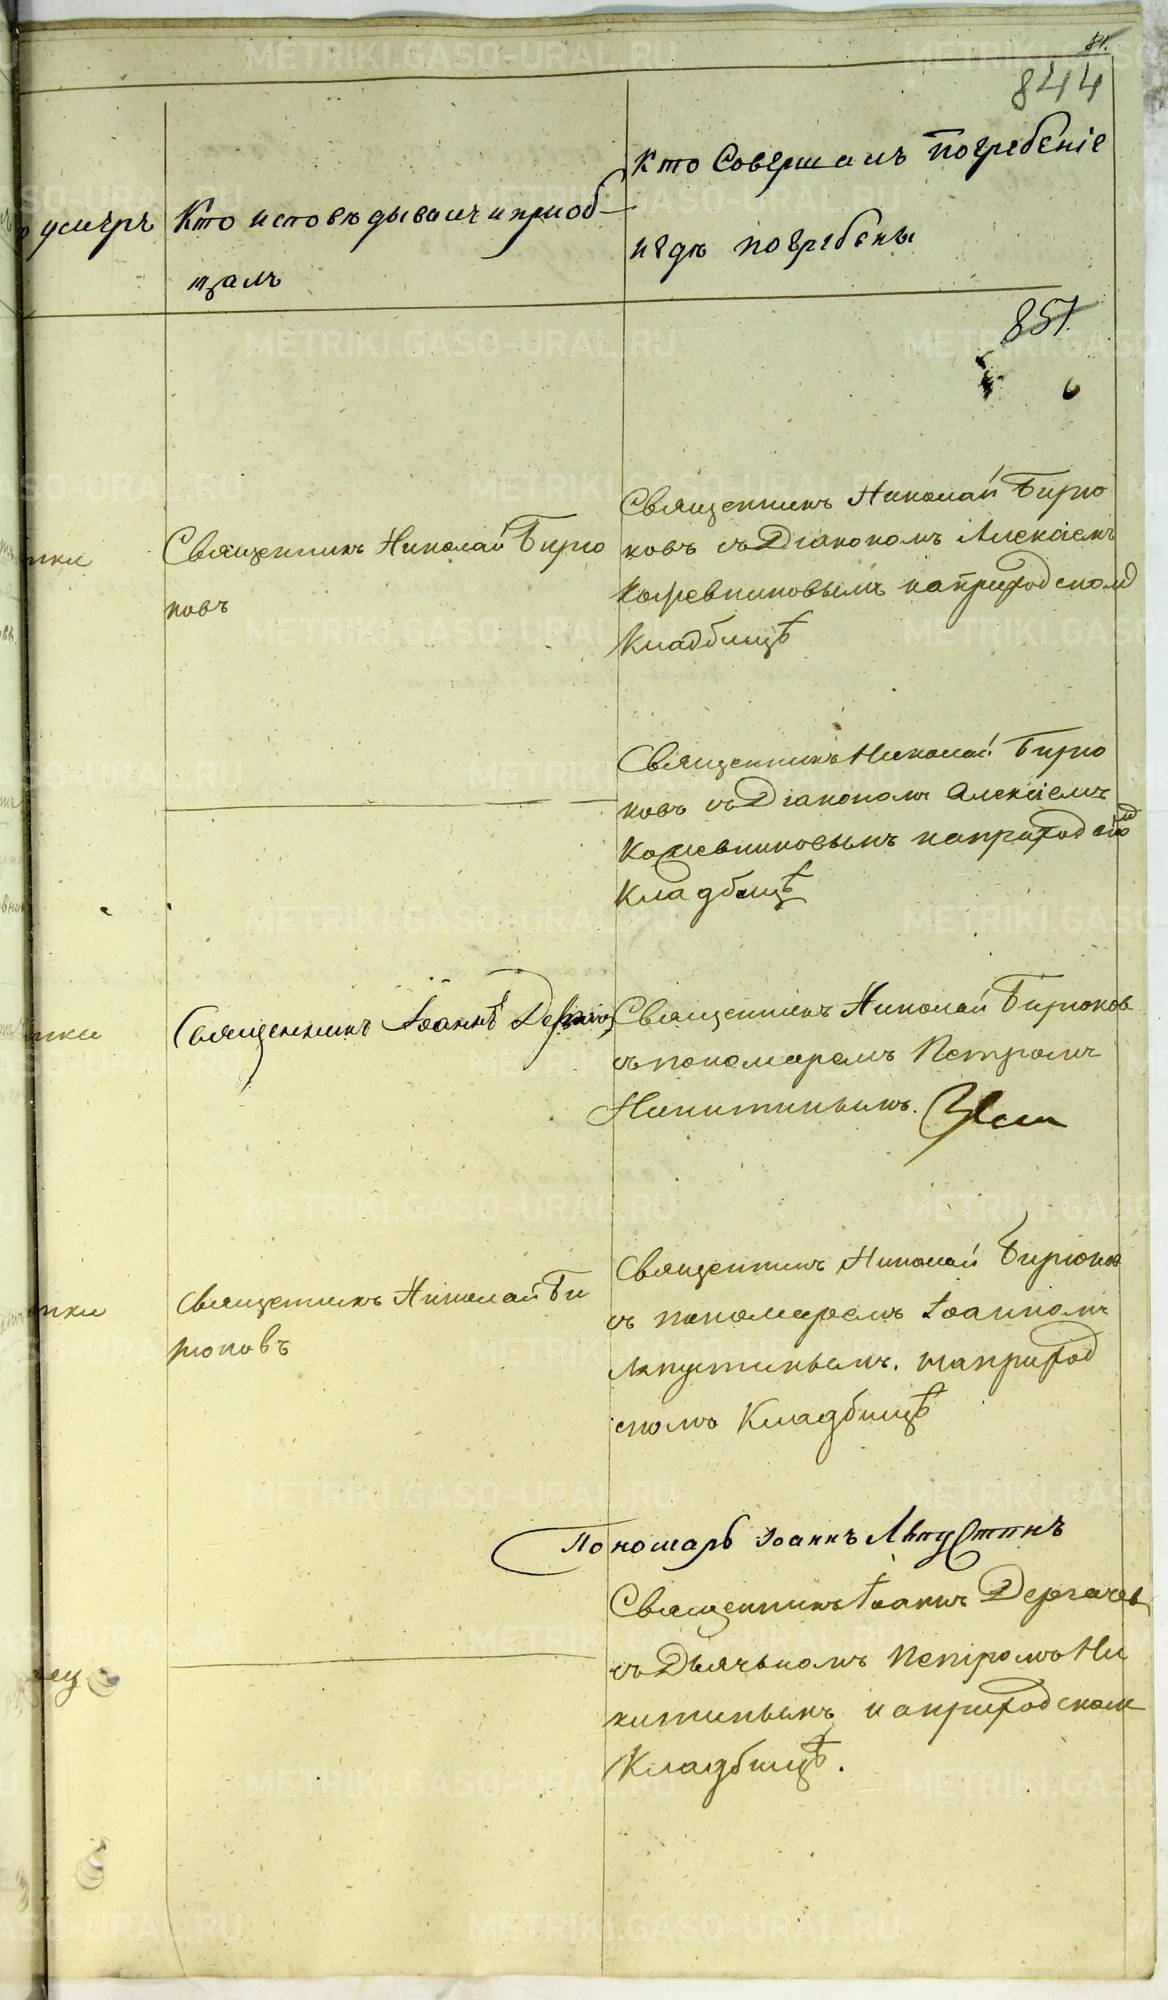 84.
844
умеръ
Кто исповѣдывалъ и приоб-
щалъ
Кто Совершалъ Погребеніе
и гдѣ погребены
857
Священникъ Николай Бирю
ковъ
Священникъ Николай Бирю
ковъ съ Діакономъ Алексіемъ
Кожевниковымъ на приходском
Кладбищѣ
Священникъ Николай Бирю
ковъ съ Діакономъ Алексіемъ
Кожевниковымъ на приходском
Кладбищѣ
Священникъ Іоаннъ Дергачевъ
Священникъ Николай Бирюков
съ пономаремъ Петромъ
Никитинымъ.
Священникъ Николай Би
рюковъ
Священникъ Николай Бирюков
съ пономаремъ Іоанномъ
Ляпустинымъ. на приход
скомъ Кладбищѣ
Пономарь Іоаннъ Ляпустинъ
Священникъ Іоаннъ Дергачевъ
съ Дьячькомъ Петромъ Ни
китинымъ на приходском
Кладбищѣ.
METRIKI.GASO-URAL.RU